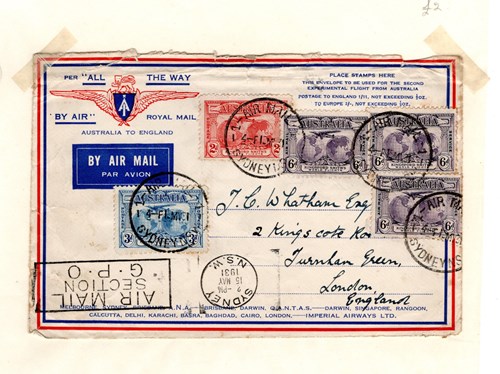 £2
PER "ALL THE WAY
"BY AIR" ROYAL MAIL
AUSTRALIA TO ENGLAND
BY AIR MAIL
PAR AVION
PLACE STAMPS HERE
THIS ENVELOPE TO BE USED FOR THE SECOND
EXPERIMENTAL FLIGHT FROM AUSTRALIA
POSTAGE TO ENGLAND 1/11, NOT EXCEEDING ½OZ.
TO EUROPE NOT EXCEEDING ½OZ.
AUSTRALIA
2d
AUSTRALIA
6d
AUSTRALIA
6d
AUSTRALIA
6d
AUSTRALIA
3d
AIR MAIL
SYDNEY N.S.W.
AIR MAIL
SYDNEY N.S.W.
AIR MAIL
SYDNEY N.S.W.
J. C. Whatham Esq
2 Kingscote Rd
Turnham Green,
London,
England
AIR MAIL
SECTION
G.P.O
SYDNEY
2 -PM
15 MAY
1931
N.S.W.
MELBOURNE, SYDNEY, BRISBANE, DARWIN, Q.A.N.T.A.S. DARWIN, SINGAPORE, RANGOON,
CALCUTTA, DELHI, KARACHI, BASRA, BAGHDAD, CAIRO, LONDON—IMPERIAL AIRWAYS LTD.